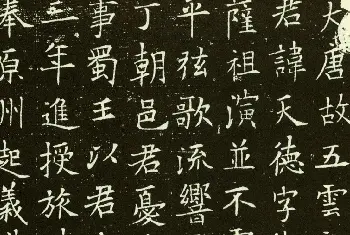 大唐故五雲
君諱天德字
薩祖演並不
平弦歌流響
丁朝邑君憂
事蜀王以君
年進授旅
奉原州起義